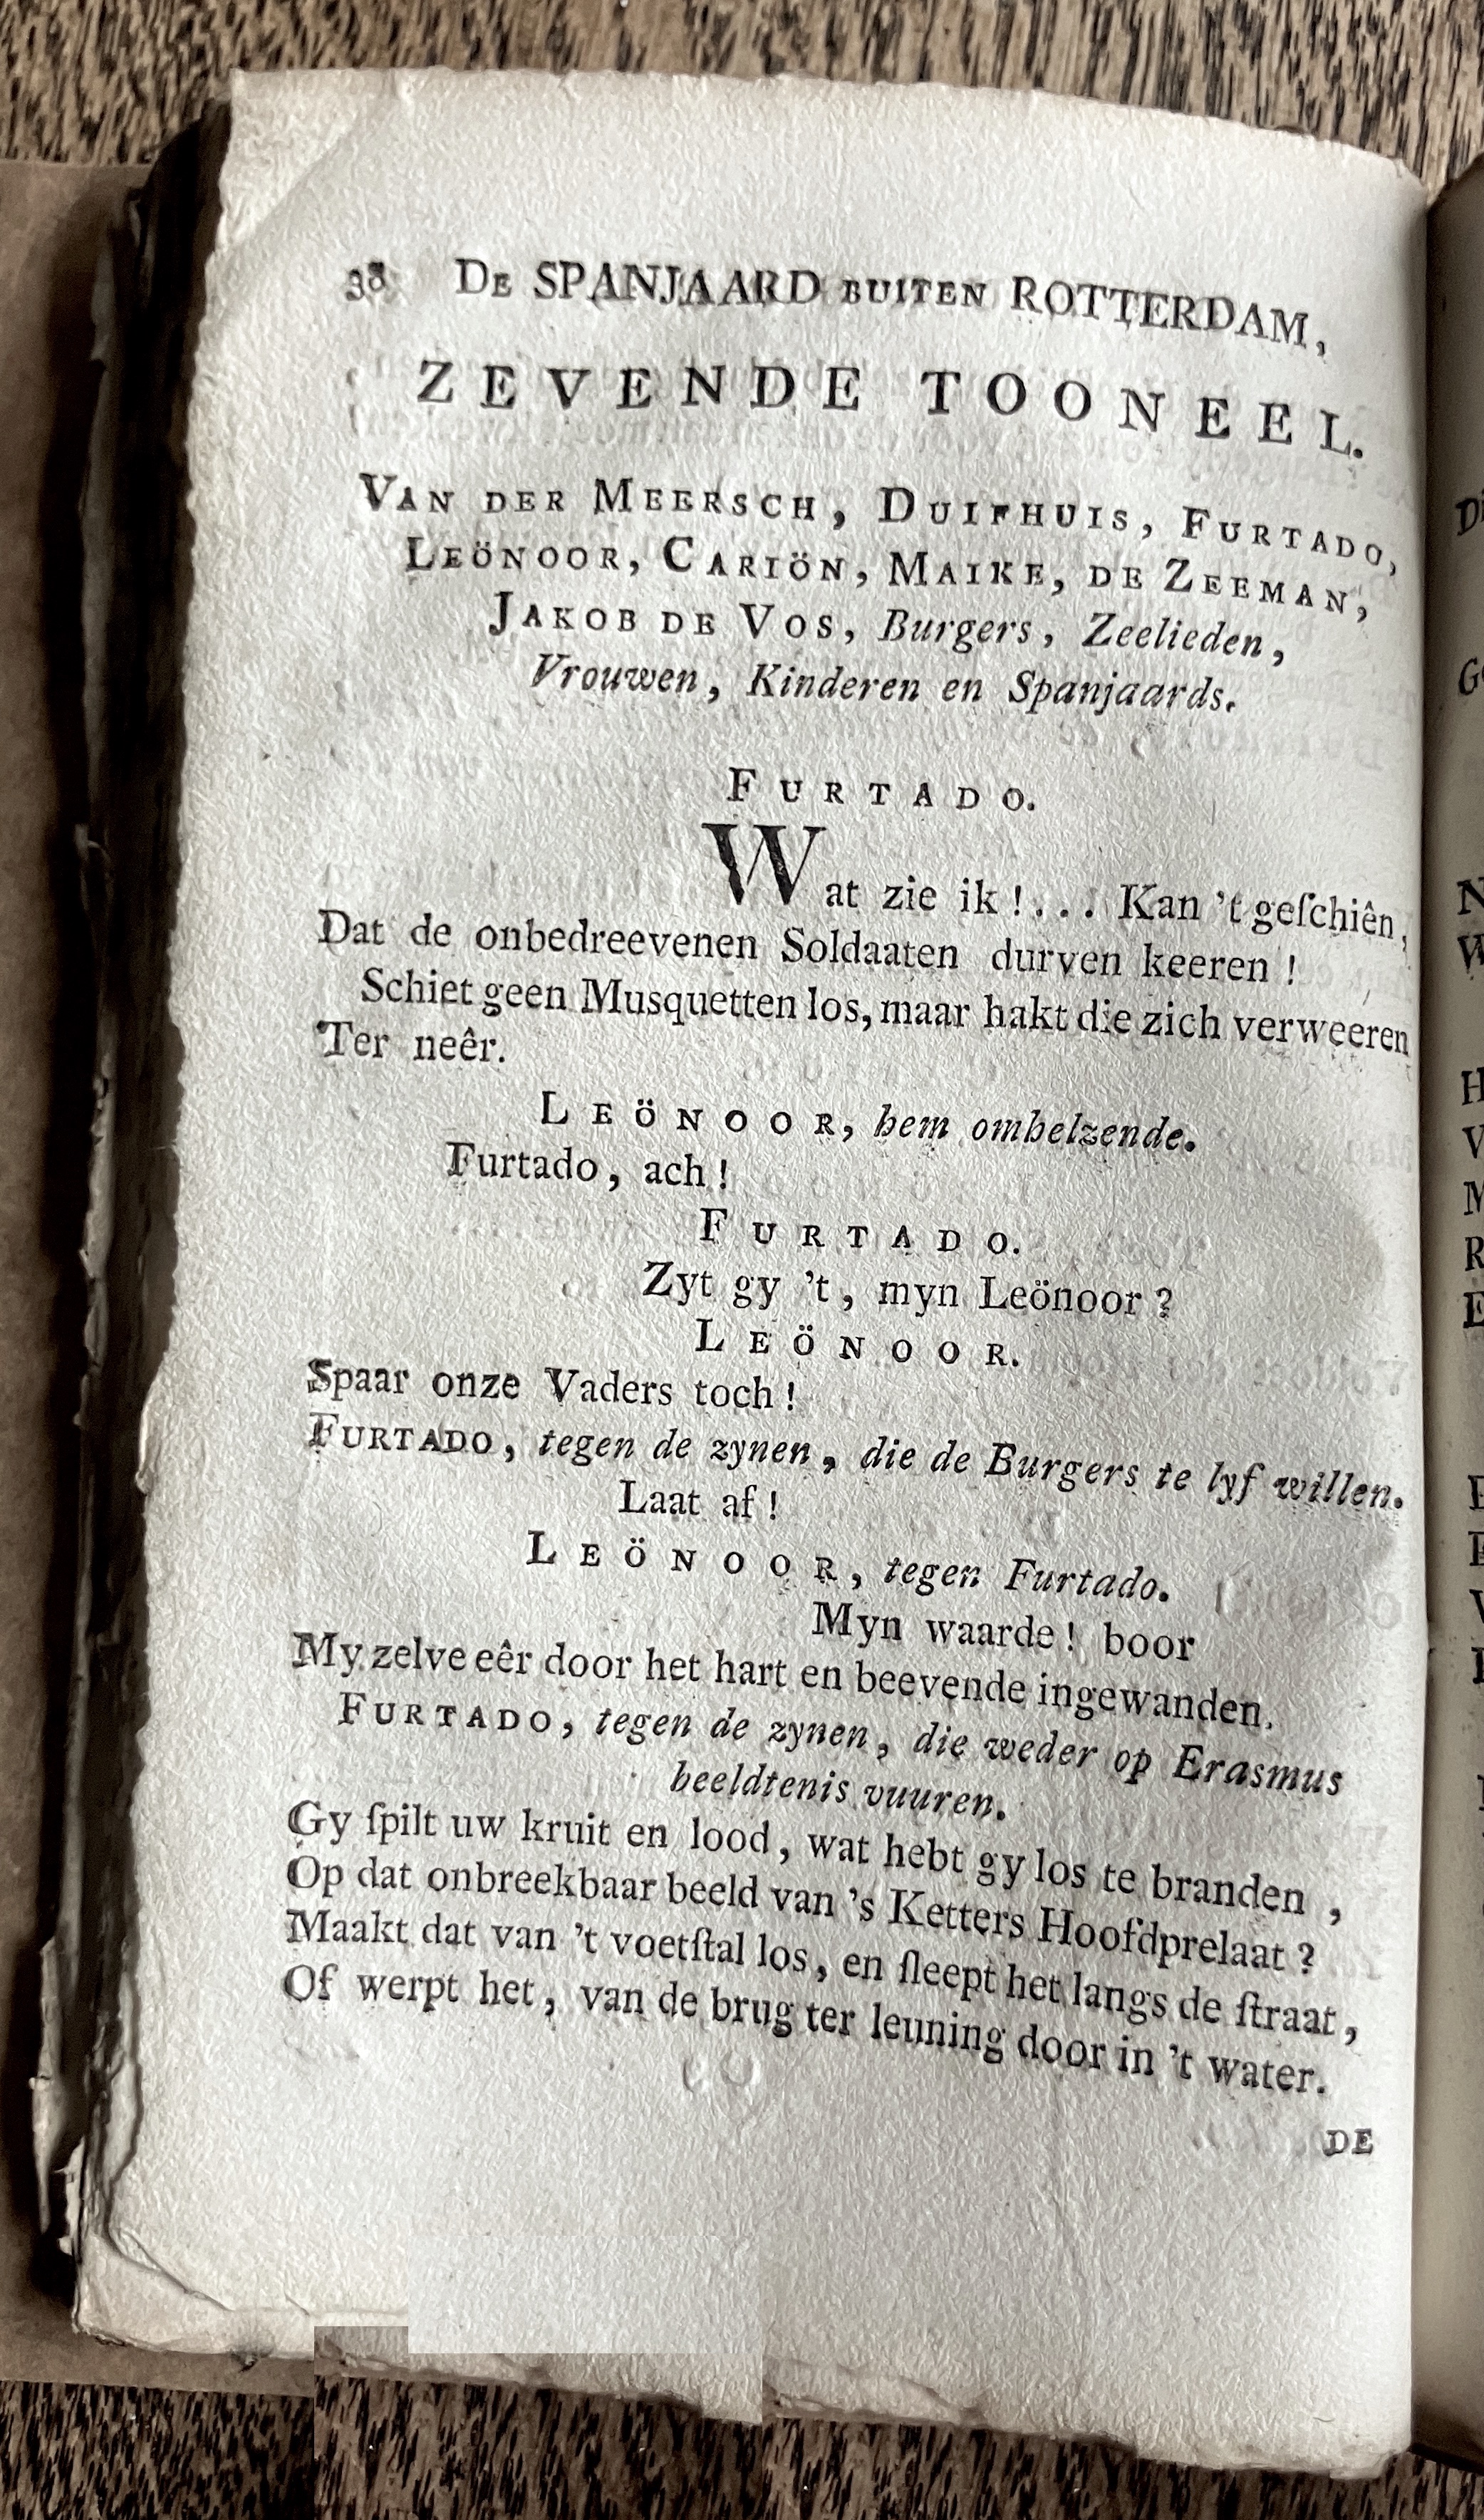 38 DE SPANJAARD BUITEN ROTTERDAM,
ZEVENDE TOONEEL.
VAN DER MEERSCH, DUIFHUIS, FURTADO,
LEÖNOOR, CARIÖN, MAIKE, DE ZEEMAN,
JAKOB DE VOS, Burgers, Zeelieden,
Vrouwen, Kinderen en Spanjaards.
FURTADO.
Wat zie ik!... Kan 't geſchiên,
Dat de onbedreevenen Soldaaten durven keeren!
Schiet geen Musquetten los, maar hakt die zich verweeren
Ter neêr.
LEÖNOOR, hem omhelzende.
Furtado, ach!
FURTADO.
Zyt gy 't, myn Leönoor?
LEÖNOOR.
Spaar onze Vaders toch!
FURTADO, tegen de zynen, die de Burgers te lyf willen.
Laat af!
LEÖNOOR, tegen Furtado.
Myn waarde! boor
My zelve eêr door het hart en beevende ingewanden.
FURTADO, tegen de zynen, die weder op Erasmus
beeldtenis vuuren.
Gy ſpilt uw kruit en lood, wat hebt gy los te branden,
Op dat onbreekbaar beeld van 's Ketters Hoofdprelaat?
Maakt dat van 't voetſtal los, en ſleept het langs de ſtraat,
Of werpt het, van de brug ter leuning door in 't water.
DE